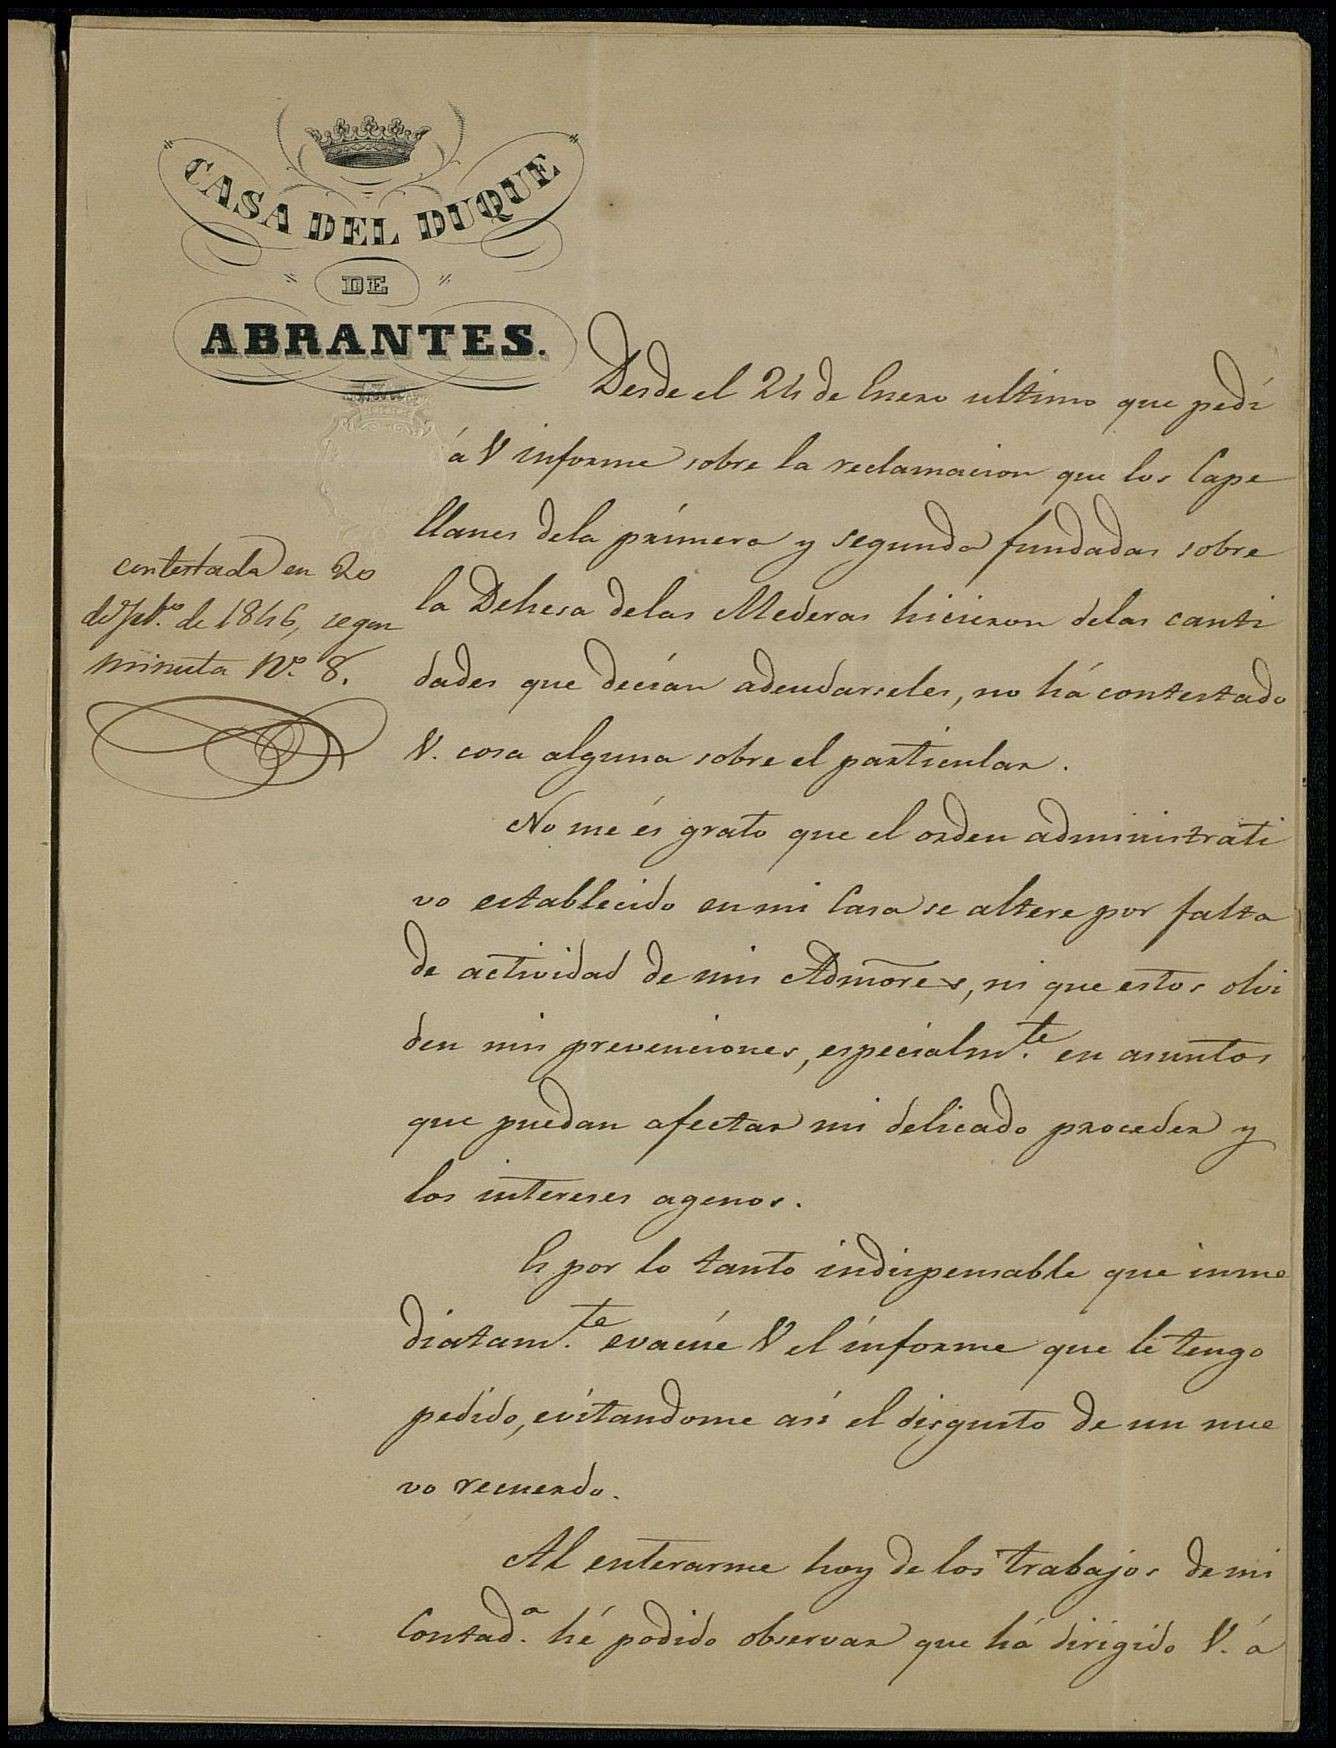 CASA DEL DUQUE
DE
ABRANTES.
Desde el 24 de Enero ultimo que pedi
á V informe sobre la reclamacion que los Cape
llanes dela primera y segunda fundadas sobre
la Dehesa delas Mederas hicieron delas canti
dades que decian adeudarseles, no há contestado
V. cosa alguna sobre el particular.
contestada en 20
de de 1846, segun
minuta Nº. 8.
No me és grato que el orden administrati
vo establecido en mi Casa se altere por falta
de actividad de mis Admores, ni que estos olvi
den mis prevenciones, especialm.te en asuntos
que puedan afectar mi delicado proceder y
los intereses agenos.
Es por lo tanto indispensable que inme
diatam.te evacúe V el informe que le tengo
pedido, evitandome asi el disgusto de un nue
vo recuerdo.
Al enterarme hoy de los trabajos de mi
Contad.a hé podido observar que há dirigido V. á